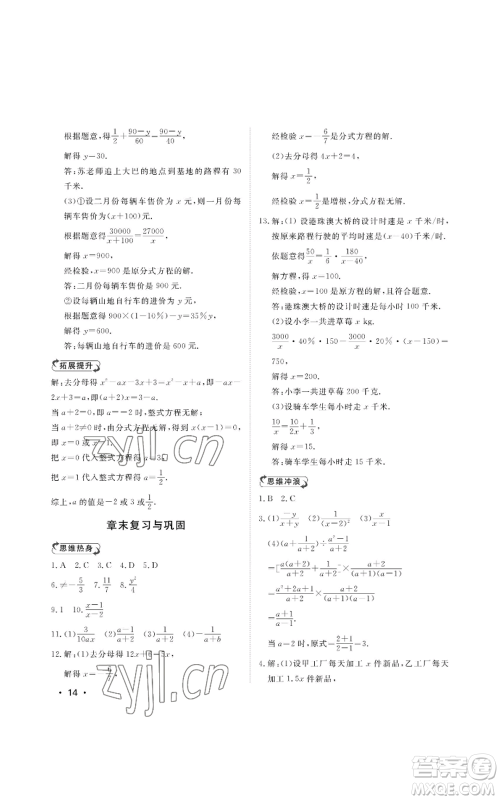 根据题意,得1/2+(90-y)/60=(90-y)/40.
解得 y=30.
答:苏老师追上大巴的地点到基地的路程有 30
千米.
(3)①设二月份每辆车售价为 x 元,则一月份每
辆车售价为(x+100)元.
根据题意得30000/(x+100)=27000/x
解得 x=900,
经检验,x=900 是原分式方程的解.
答:二月份每辆车售价是 900 元.
②设每辆山地自行车的进价为 y 元,
根据题意得 900×(1-10%)-y=35%y,
解得 y=600.
答:每辆山地自行车的进价是 600 元.
拓展提升
解:去分母得 x²-ax-3x+3=x²-x,解得 ax-
2x+3=0,即(a+2)x=3.
当 a+2=0 即 a=-2 时,整式方程无解;
当 a+2≠0 时,由分式方程无解,得到
x=0 或 x=1,
把 x=0 代入整式方程得
把 x=1 代入整式方程得 a=1.
综上,a 的值是-2 或
章末复习与巩固
思维热身
1. A 2. C 3. A 4. C 5. D
6. ≠-5/3 7. 11/7 8. y²/4
9. 1 10. (x-1)/(x-2)
11. (1)3/(10ax) (2)(a-1)/(a+2) (3)1/(a+b)
12. 解:(1)去分母得 12x+6=5x,
解得 x=-6/7,
• 14 •
经检验 x=-6/7是分式方程的解.
(2)去分母得 4x+2=4,
解得 x=1/2,
经检验 x=1/2是增根,分式方程无解.
13. 解:(1)设港珠澳大桥的设计时速是 x 千米/时,
按原来路程行驶的平均时速是(x-40)千米/时.
依题意得50/x=1/6·180/(x-40)
解方程,得 x=100.
经检验:x=100 是原方程的解,且符合题意.
答:港珠澳大桥的设计时速是每小时 100 千米.
(2)设小李一共进草莓 x kg.
3000/x·40%·150-3000/x·20%·(x-150)=
750,
解得 x=200.
经检验 x=200 是原方程的解.
答:小李一共进草莓 200 千克.
(3)设骑车学生每小时走 x 千米,
10/x=10/(2x)+1/3,
解得:x=15,
经检验 x=15 是原方程的解.
答:骑车学生每小时行 15 千米.
思维冲浪
1. B 2. C
3. (1)-y/(x+y) (2)1/(a-1) (3)x/(x-1)
(4)(a+1/(a+2))÷(a²-1)/(a+2)
=[a(a+2)/(a+2)+1/(a+2)]×(a+2)/((a+1)(a-1))
=(a²+2a+1)/(a+2)×(a+2)/((a+1)(a-1))
=(a+1)/(a-1).
当 a=2 时,原式=(2+1)/(2-1)=3.
4. 解:(1)设甲工厂每天加工 x 件新品,乙工厂每天
加工 1.5x 件新品,
zyjl.cn